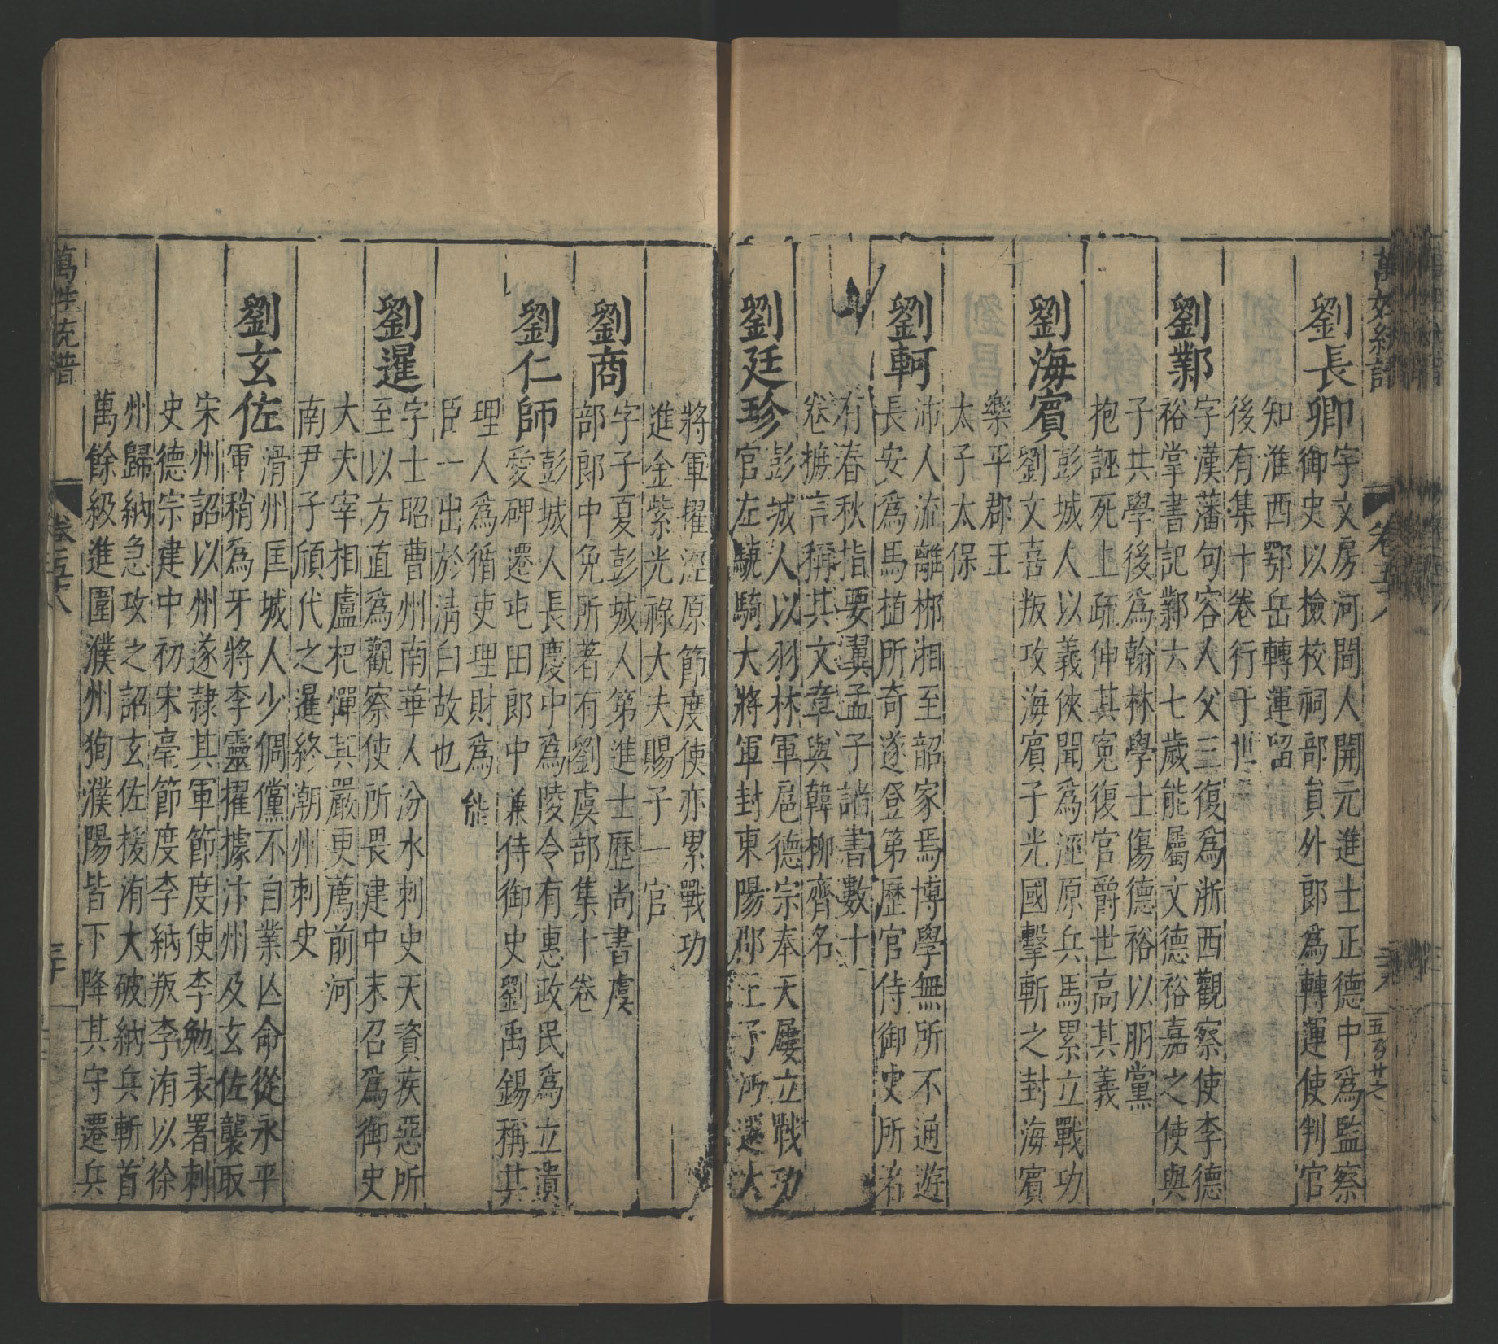 劉長卿
字文房河間人開元進士正德中爲監察
御史以檢校祠部員外郎爲轉運使判官
知淮西鄂岳轉運留
後有集十卷行于世
劉鄴
字漢藩句容人父三復爲浙西觀察使李德
裕掌書記鄴六七歲能屬文德裕嘉之使與
子共學後爲翰林學士傷德裕以朋黨
抱誣死上疏伸其寃復官爵世高其義
劉海賓
彭城人以義俠聞爲涇原兵馬累立戰功
劉文喜叛攻海賓子光國擊斬之封海賓
樂平郡王
太子太保
劉軻
沛人流離郴湘至韶家焉博學無所不通遊
長安爲馬植所奇遂登第歷官侍御史所著
有春秋指要翼孟子諸書數十
卷摭言稱其文章與韓柳齊名
劉廷珍
彭城人以羽林軍扈德宗奉天屢立戰功
官左驍騎大將軍封東陽郡王
將軍擢涇原節度使亦累戰功
進金紫光祿大夫賜子一官
劉商
字子夏彭城人第進士歷尚書虞
部郎中免所著有劉虞部集十卷
劉仁師
彭城人長慶中爲陵令有惠政民爲立遺
愛碑遷屯田郎中兼侍御史劉禹錫稱其
理人爲循吏理財爲能
臣一出於清白故也
劉暹
字士昭曹州南華人汾水刺史天資疾惡所
至以方直爲觀察使所畏建中末召爲御史
大夫宰相盧杞憚其嚴更薦前河
南尹子頎代之暹終潮州刺史
劉玄佐
滑州匡城人少倜儻不自業亾命從永平
軍稍爲牙將李靈擢據汴州及玄佐襲取
宋州詔以州遂隷其軍節度使李勉表署刺
史德宗建中初宋亳節度李納叛李洧以徐
州歸納急攻之詔玄佐援洧大破納兵斬首
萬餘級進圍濮州狥濮陽皆下降其守遷兵
萬姓统譜
卷五十八
三十